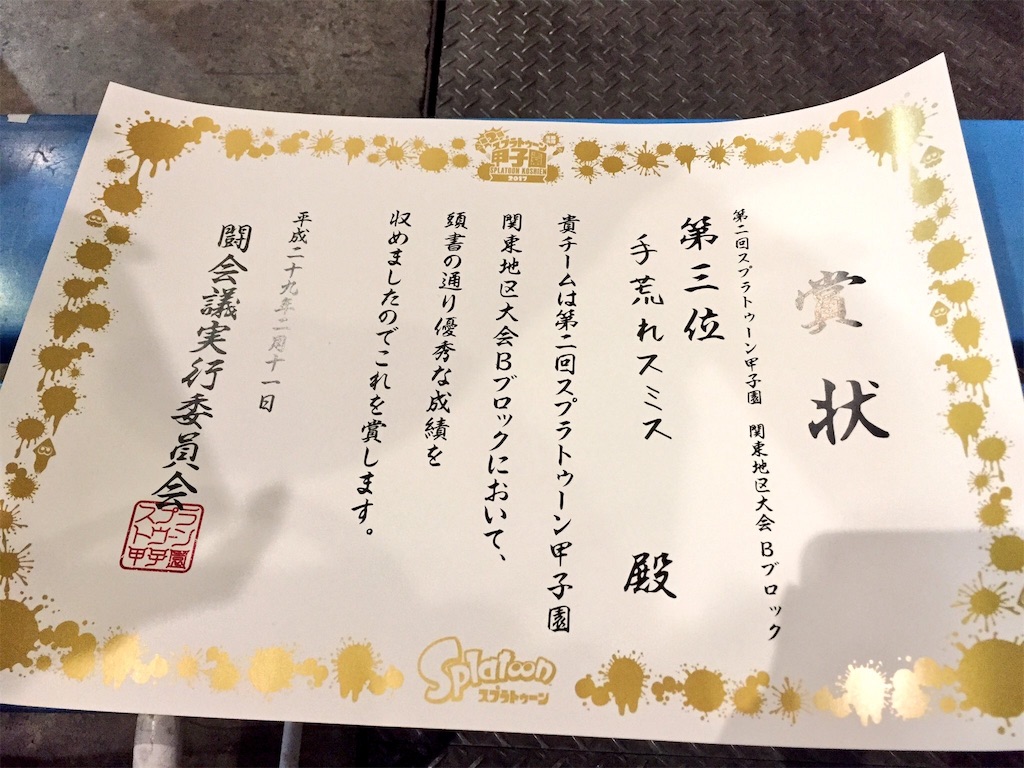 スプラトゥーン
甲子園
SPLATOON KOSHIEN
2017
賞状
第二回スプラトゥーン甲子園 関東地区大会Bブロック
第三位
手荒れスミス 殿
貴チームは第二回スプラトゥーン甲子園
関東地区大会Bブロックにおいて、
頭書の通り優秀な成績を
収めましたのでこれを賞します。
平成二十九年二月十一日
闘会議実行委員会
スプラトゥーン甲子園
Splatoon
スプラトゥーン